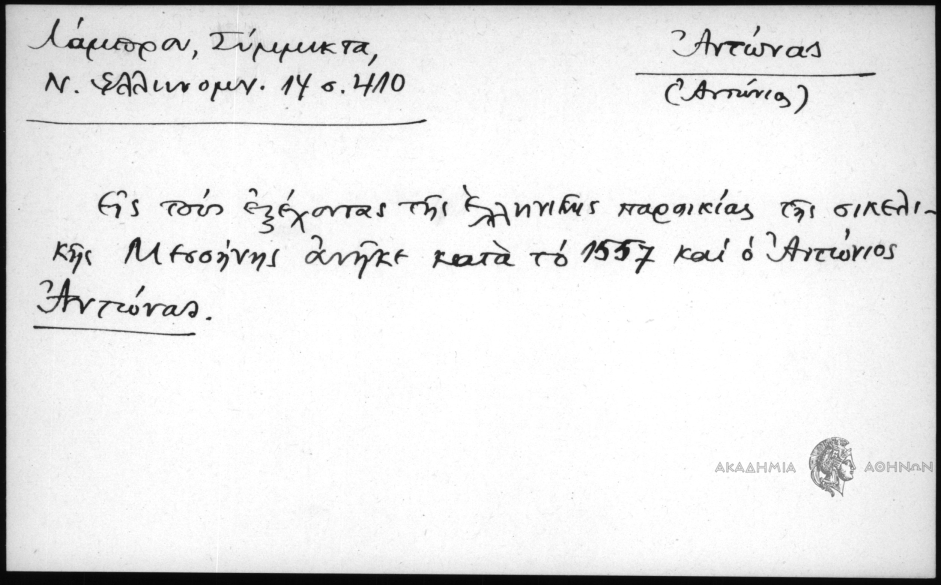 Λάμπρου, Σύμμικτα,
Ν. Ἑλληνομν. 14 σ. 410
Ἀντώνας
(Ἀντώνιος)
Εἰς τούς ἐξέχοντας τῆς ἑλληνικῆς παροικίας τῆς σικελι-
κῆς Μεσσήνης ἀνῆκε κατὰ τό 1557 καί ὁ Ἀντώνιος
Ἀντώνας.
ΑΚΑΔΗΜΙΑ ΑΘΗΝΩΝ